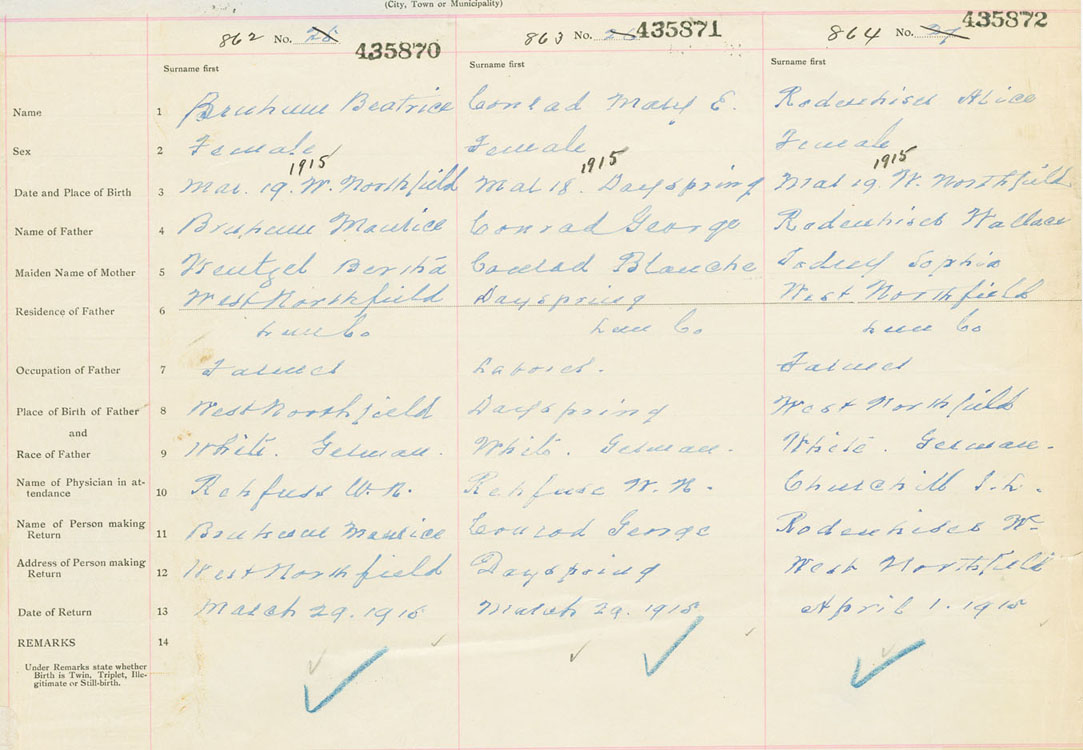 (City, Town or Municipality)
862 No. 435870 863 No. 435871 864 No. 435872
Surname first Surname first Surname first
Name 1 Bruhum Beatrice Conrad Mary E. Rodenhiser Alice
Sex 2 Female Female Female
1915 1915 1915
Date and Place of Birth 3 Mar. 19. W. Northfield Mar 18. Dayspring Mar 19. W. Northfield
Name of Father 4 Bruhum Maurice Conrad George Rodenhiser Wallace
Maiden Name of Mother 5 Wentzel Bertha Conrad Blanche Sophia
West Northfield Dayspring West Northfield
Residence of Father 6
Lun Co Lun Co Lun Co
Occupation of Father 7 Farmer Laborer. Farmer
Place of Birth of Father 8 West Northfield Dayspring West Northfield
and
Race of Father 9 White. German. White. German. White. German.
Name of Physician in at-
tendance 10 Rehfuss W. N. Rehfuss W. N. Churchill J. L.
Name of Person making
Return 11 Bruhum Maurice Conrad George Rodenhiser W.
Address of Person making
Return 12 West Northfield Dayspring West Northfield
Date of Return 13 March 29. 1915 March 29. 1915 April 1. 1915
REMARKS 14
Under Remarks state whether
Birth is Twin, Triplet, Ille-
gitimate or Still-birth.